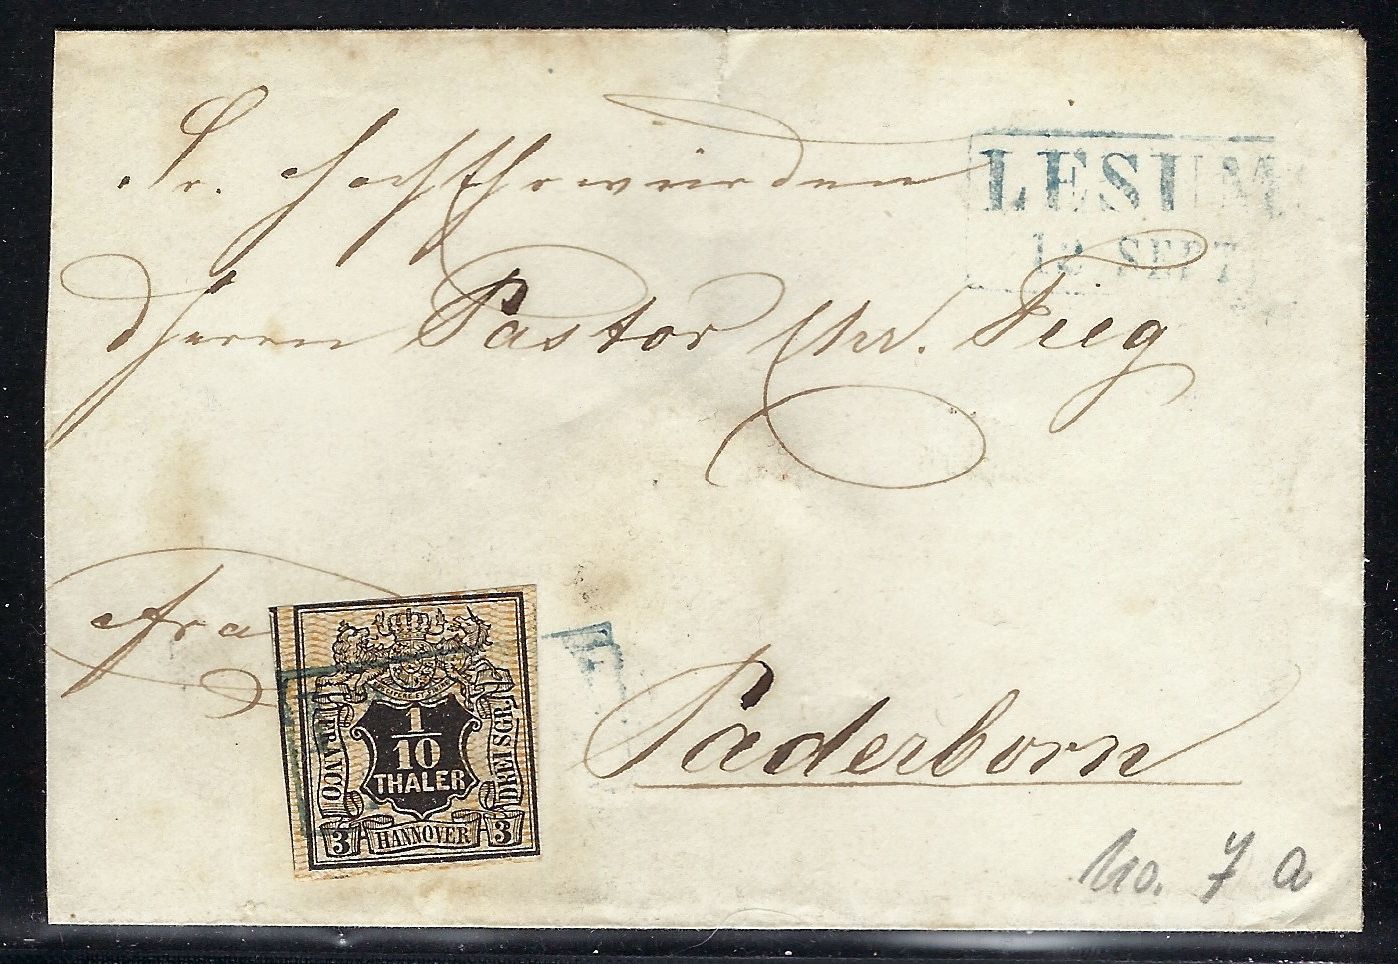 Sr. Hochehrwürden
LESUM
12 SEPT
Herrn Pastor Chr. Tieg
Fra
FRANCO
1/10
THALER
DREI SGR.
3 HANNOVER 3
Paderborn
No. 7 a